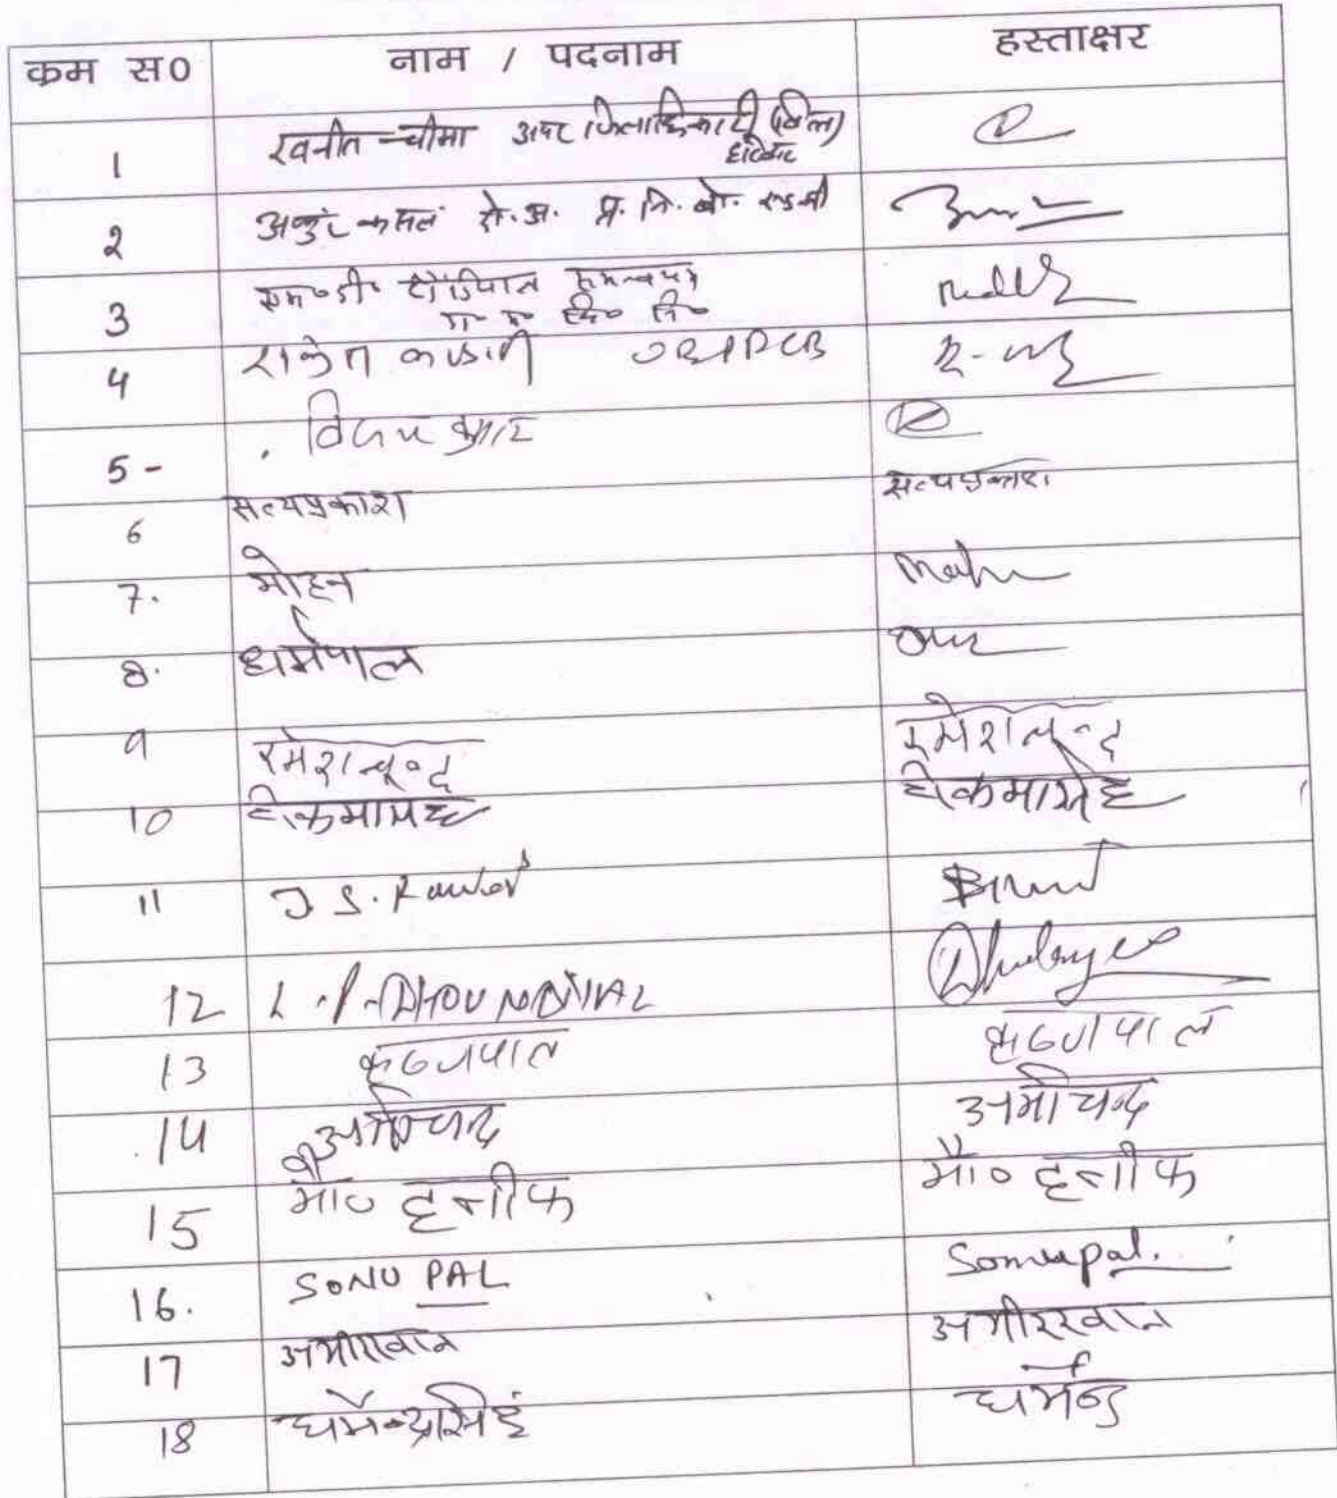 क्रम स0 नाम / पदनाम हस्ताक्षर
1 रवनीत चीमा अपर जिलाधिकारी (वित्त)
हरिद्वार
2 अंकुर कंसल क्षे.अ. प्र. नि. बो. रुड़की
3 एम०डी०
4 राकेश कण्डारी
5 - विजय कुमार
6 सत्यप्रकाश सत्यप्रकाश
7. मोहन
8. धर्मपाल
9 रमेशचन्द रमेशचन्द
10
11 J S. Rawat
12 L.P. DHOUNDIYAL
13 कृष्णपाल कृष्णपाल
14 अमीचन्द अमीचन्द
15 मौ० हनीफ मौ० हनीफ
16. SONU PAL Sonupal.
17 अमीरखान अमीरखान
18 धर्मेन्द्रसिहं धर्मेन्द्र